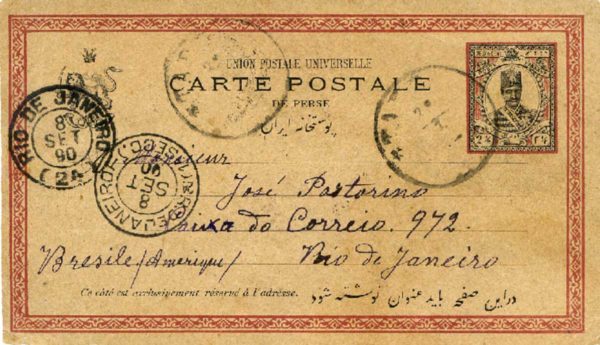 UNION POSTALE UNIVERSELLE
CARTE POSTALE
DE PERSE
پوستخانه ایران
RIO DE JANEIRO
8
SET
90
Monsieur
José Pastorino
Caixa do Correio 972.
Bresile (Amerique) Rio de Janeiro
Ce côté est exclusivement réservé à l'adresse.
در این صفحه باید عنوان نوشته شود
8
SET
90